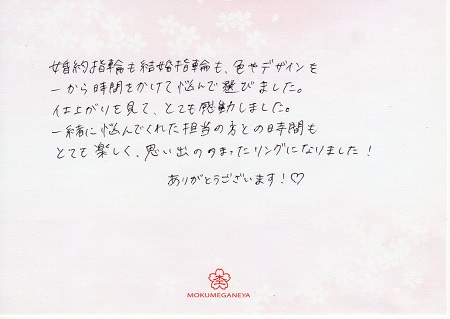 婚約指輪も結婚指輪も、色やデザインを
一から時間をかけて悩んで選びました。
仕上がりを見て、とても感動しました。
一緒に悩んでくれた担当の方との時間も
とても楽しく、思い出ののまったリングになりました!
ありがとうございます!♡
MOKUMEGANEYA